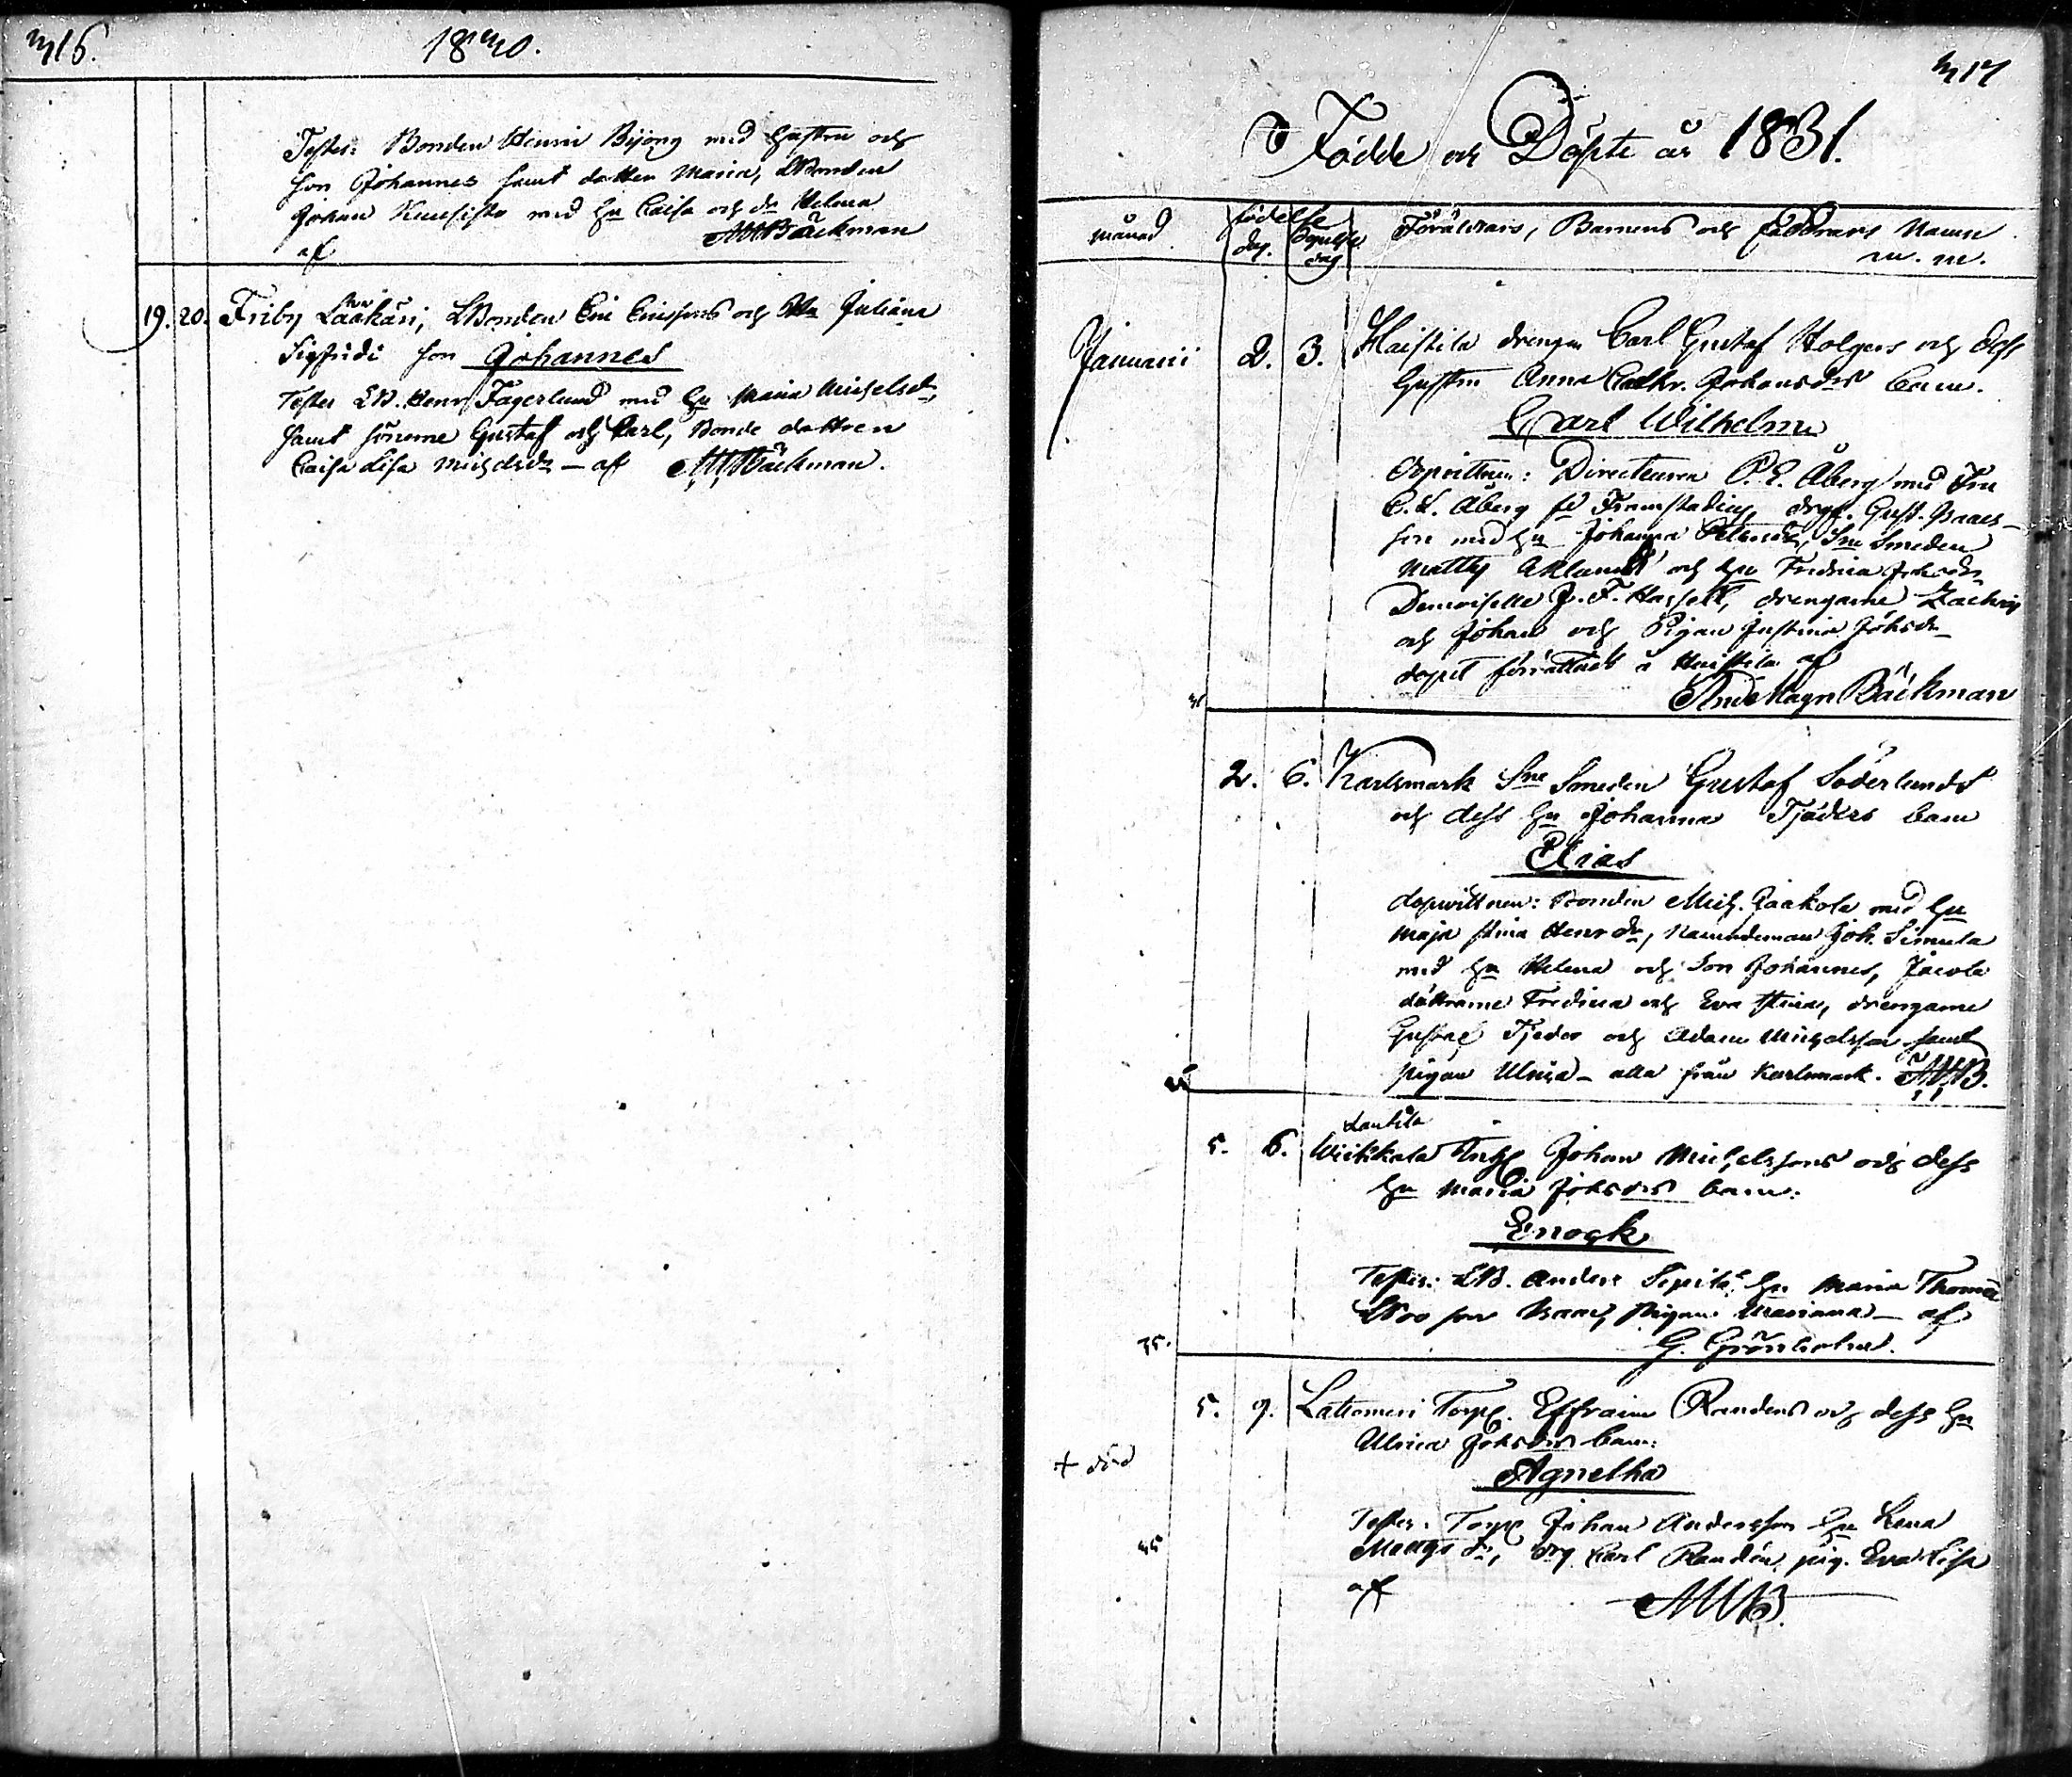 316.
1830.
Testes: Bonden Henric Bijong med hustru och
son Johannes samt dotter Maria, LBonden
Johan med Hu Caisa och dr Helena
af AMBäckman
19. 20. Friby Lääkäri, LBonden Eric Ericssons och Hu Juliana
Sigfridi son Johannes
Testes LB. Henr Fagerlund med Hu Maria Michelsdr,
samt sönerne Gustaf och Carl, Bonde dottren
Caisa Lisa Michelsdr - af AMBäckman.
317
Födde och Döpte år 1831.
månad. födelse dag. Döpelse dag Föräldrars, Barnens och Faddrars Namn
m. m.
Januarii 2. 3. Haistila drengen Carl Gustaf Holgers och dess
hustru Anna Cathr. Johansdrs barn.
Carl Wilhelm
Dopvittnen: Directeuren P. E. Åberg med Fru
C. L. Åberg drgn. Gust. Isaacs-
son med Hu Johanna Sne Smeden
Matths och Hu Fredrica
Demoiselle J. F. Hassell, drengarne Zachris
och Johan och Pigan Justina Johsdr
dopet förrättadt å Haistila af
And Magn Bäckman
2. 6. Karlsmark Sne Smeden Gustaf Söderlunds
och dess Hu Johanna Tjäders barn
Elias
dopvittnen: Bonden Mich. Jaakola med Hu
Maja Stina Henrdr, Nämndeman Joh. Simula
med Hu Helena och Son Johannes,
döttrarne Fredrica och Eva Stina, drengarne
Gustaf Tjeder och Adam Michelsson samt
pigan Ulrica - alla från Karlsmark. AMB.
Lautila
5. 6. Wiikkala Johan Michelssons och dess
Hu Maria Johsdrs barn.
Enock
Testes: LB. Anders Sepila, Hu Maria Thomæ
son Isaac, Pigan Mariana - af
35. G. Grönholm.
5. 9. Lattomeri Torp. Effraim Randens och dess Hu
Ulrica Johsdrs barn:
+ död
Agnetha
Testes: Torp Johan Andersson Hu Lena
Matts dr, drg Carl Randén, pig. Eva Lisa
af AMB.